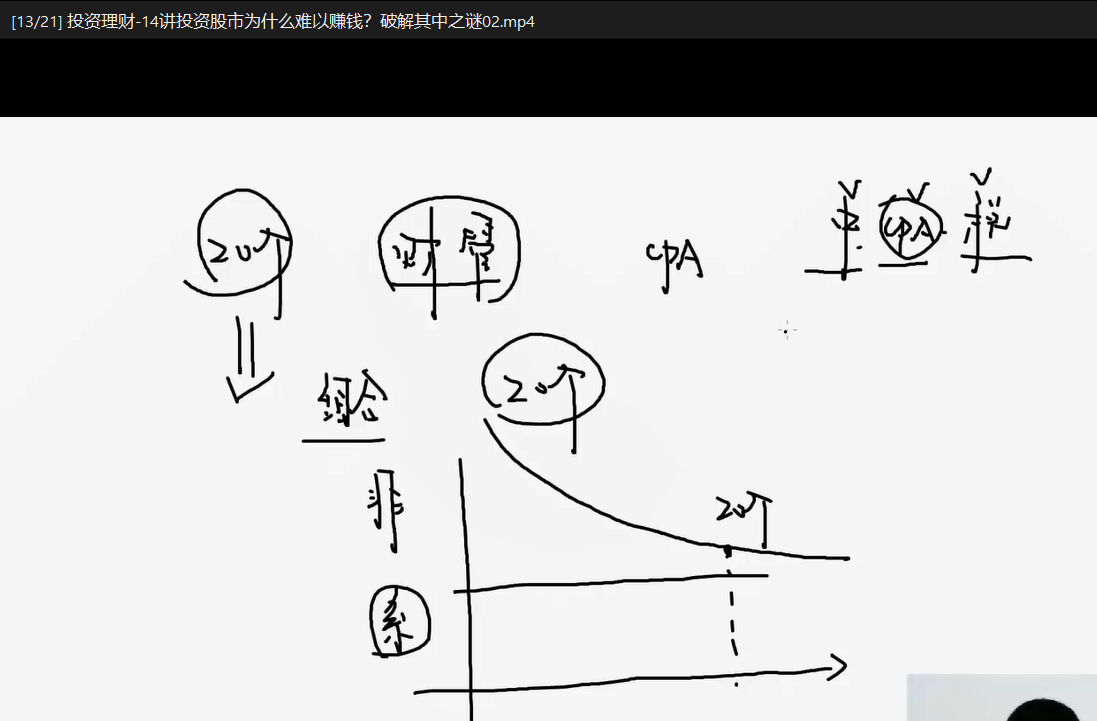 [13/21] 投资理财-14讲投资股市为什么难以赚钱？破解其中之谜02.mp4
20个 财 CPA 中 CPA 税
组合 20个
非 20个
系